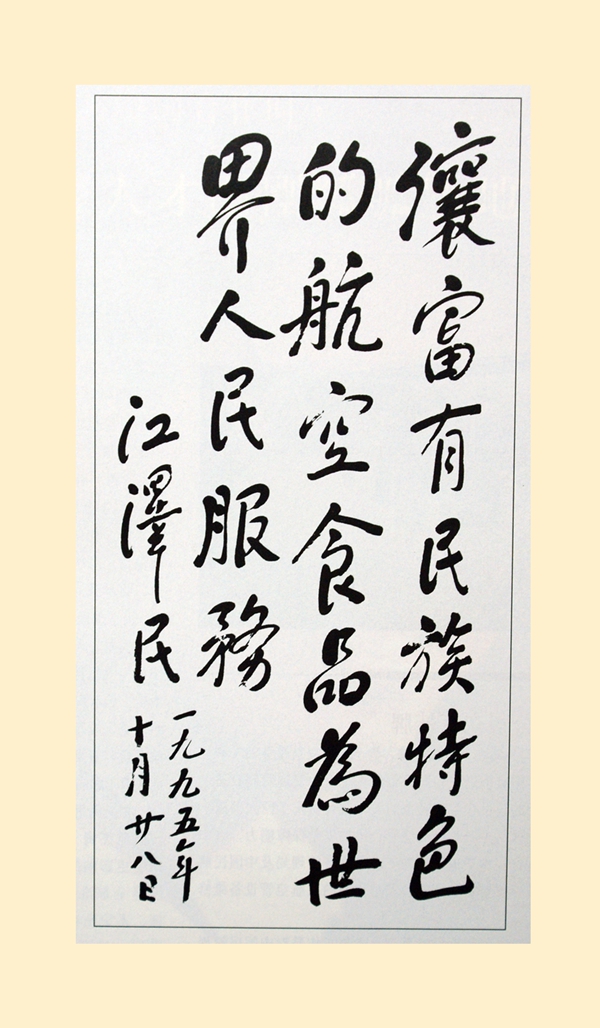 讓富有民族特色
的航空食品為世
界人民服務
江澤民
一九九五年
十月廿八日